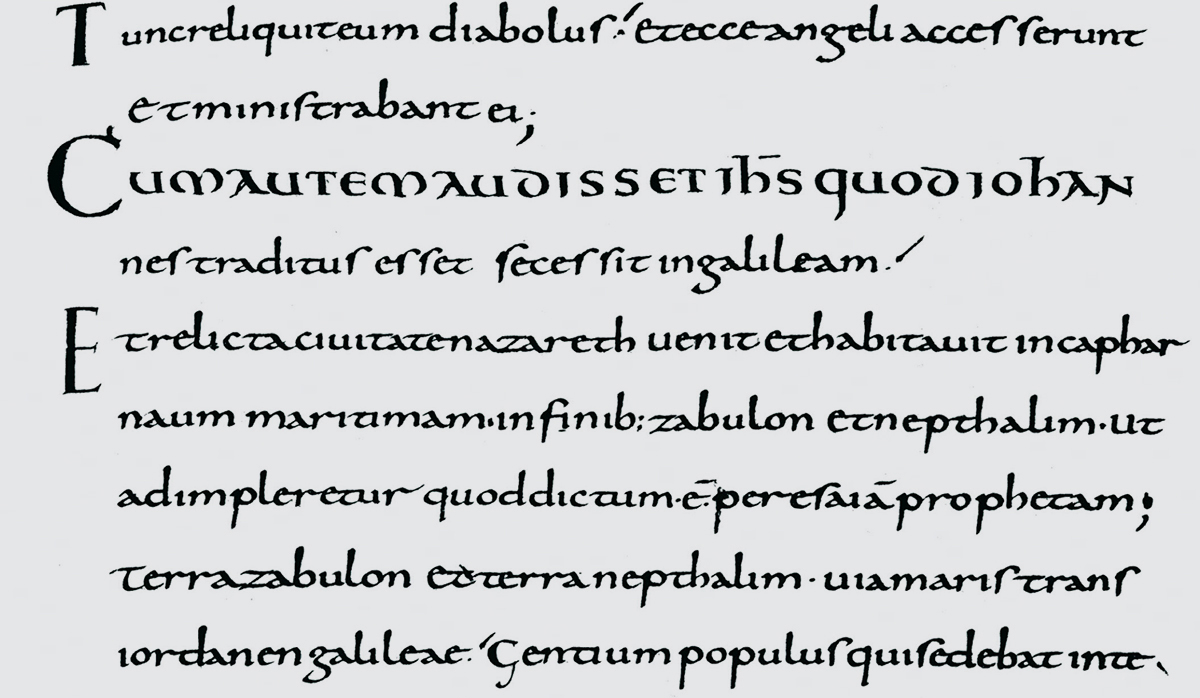 Tunc reliquit eum diabolus. Et ecce angeli accesserunt
et ministrabant ei;
CUM AUTEM AUDISSET IHS̅ QUOD IOHAN
nes traditus esset secessit in galileam.
Et relicta ciuitate nazareth uenit et habitauit in caphar
naum maritimam · in finib; zabulon et nepthalim · Ut
adimpleretur quod dictum · ē per esaiā prophetam;
terra zabulon et terra nepthalim · uia maris trans
iordanen galileae. Gentium populus qui sedebat in te